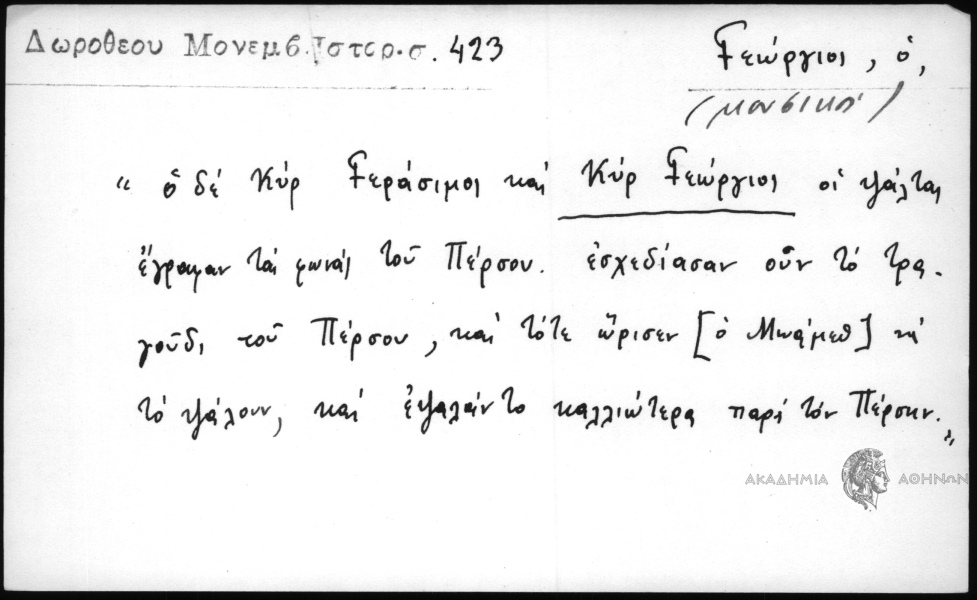 Δωροθεου Μονεμβ. Ιστορ. σ. 423
Γεώργιος, ὁ,
(μουσικός)
“ ὁ δέ Κύρ Γεράσιμος καί Κύρ Γεώργιος οἱ ψάλται
ἔγραψαν τάς φωνάς τοῦ Πέρσου. ἐσχεδίασαν οὖν τό τρα-
γοῦδι τοῦ Πέρσου, καί τότε ὥρισεν [ὁ Μωάμεθ] νά
τό ψάλουν, καί ἐψαλάν το καλλιώτερα παρά τόν Πέρσην.”
ΑΚΑΔΗΜΙΑ ΑΘΗΝΩΝ